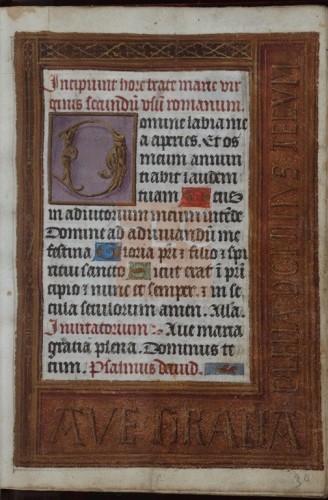 Incipiunt hore beate marie vir
ginis secundū vsū romanum.
Domine labia me
a aperies. Et os
meum annun
tiabit laudem
tuam Deus
in adiutorium meum intēde
Domine ad adiuuandū me
festina Gloria pr̄i z filio z spi
ritui sancto Sicut erat ī prī
cipio z nunc et semper. z in se
cula seculorum amen. Alla.
Inuitatorium: Aue maria
gratia plena. Dominus te
cum. Psalmus dauid.
AVE GRANA